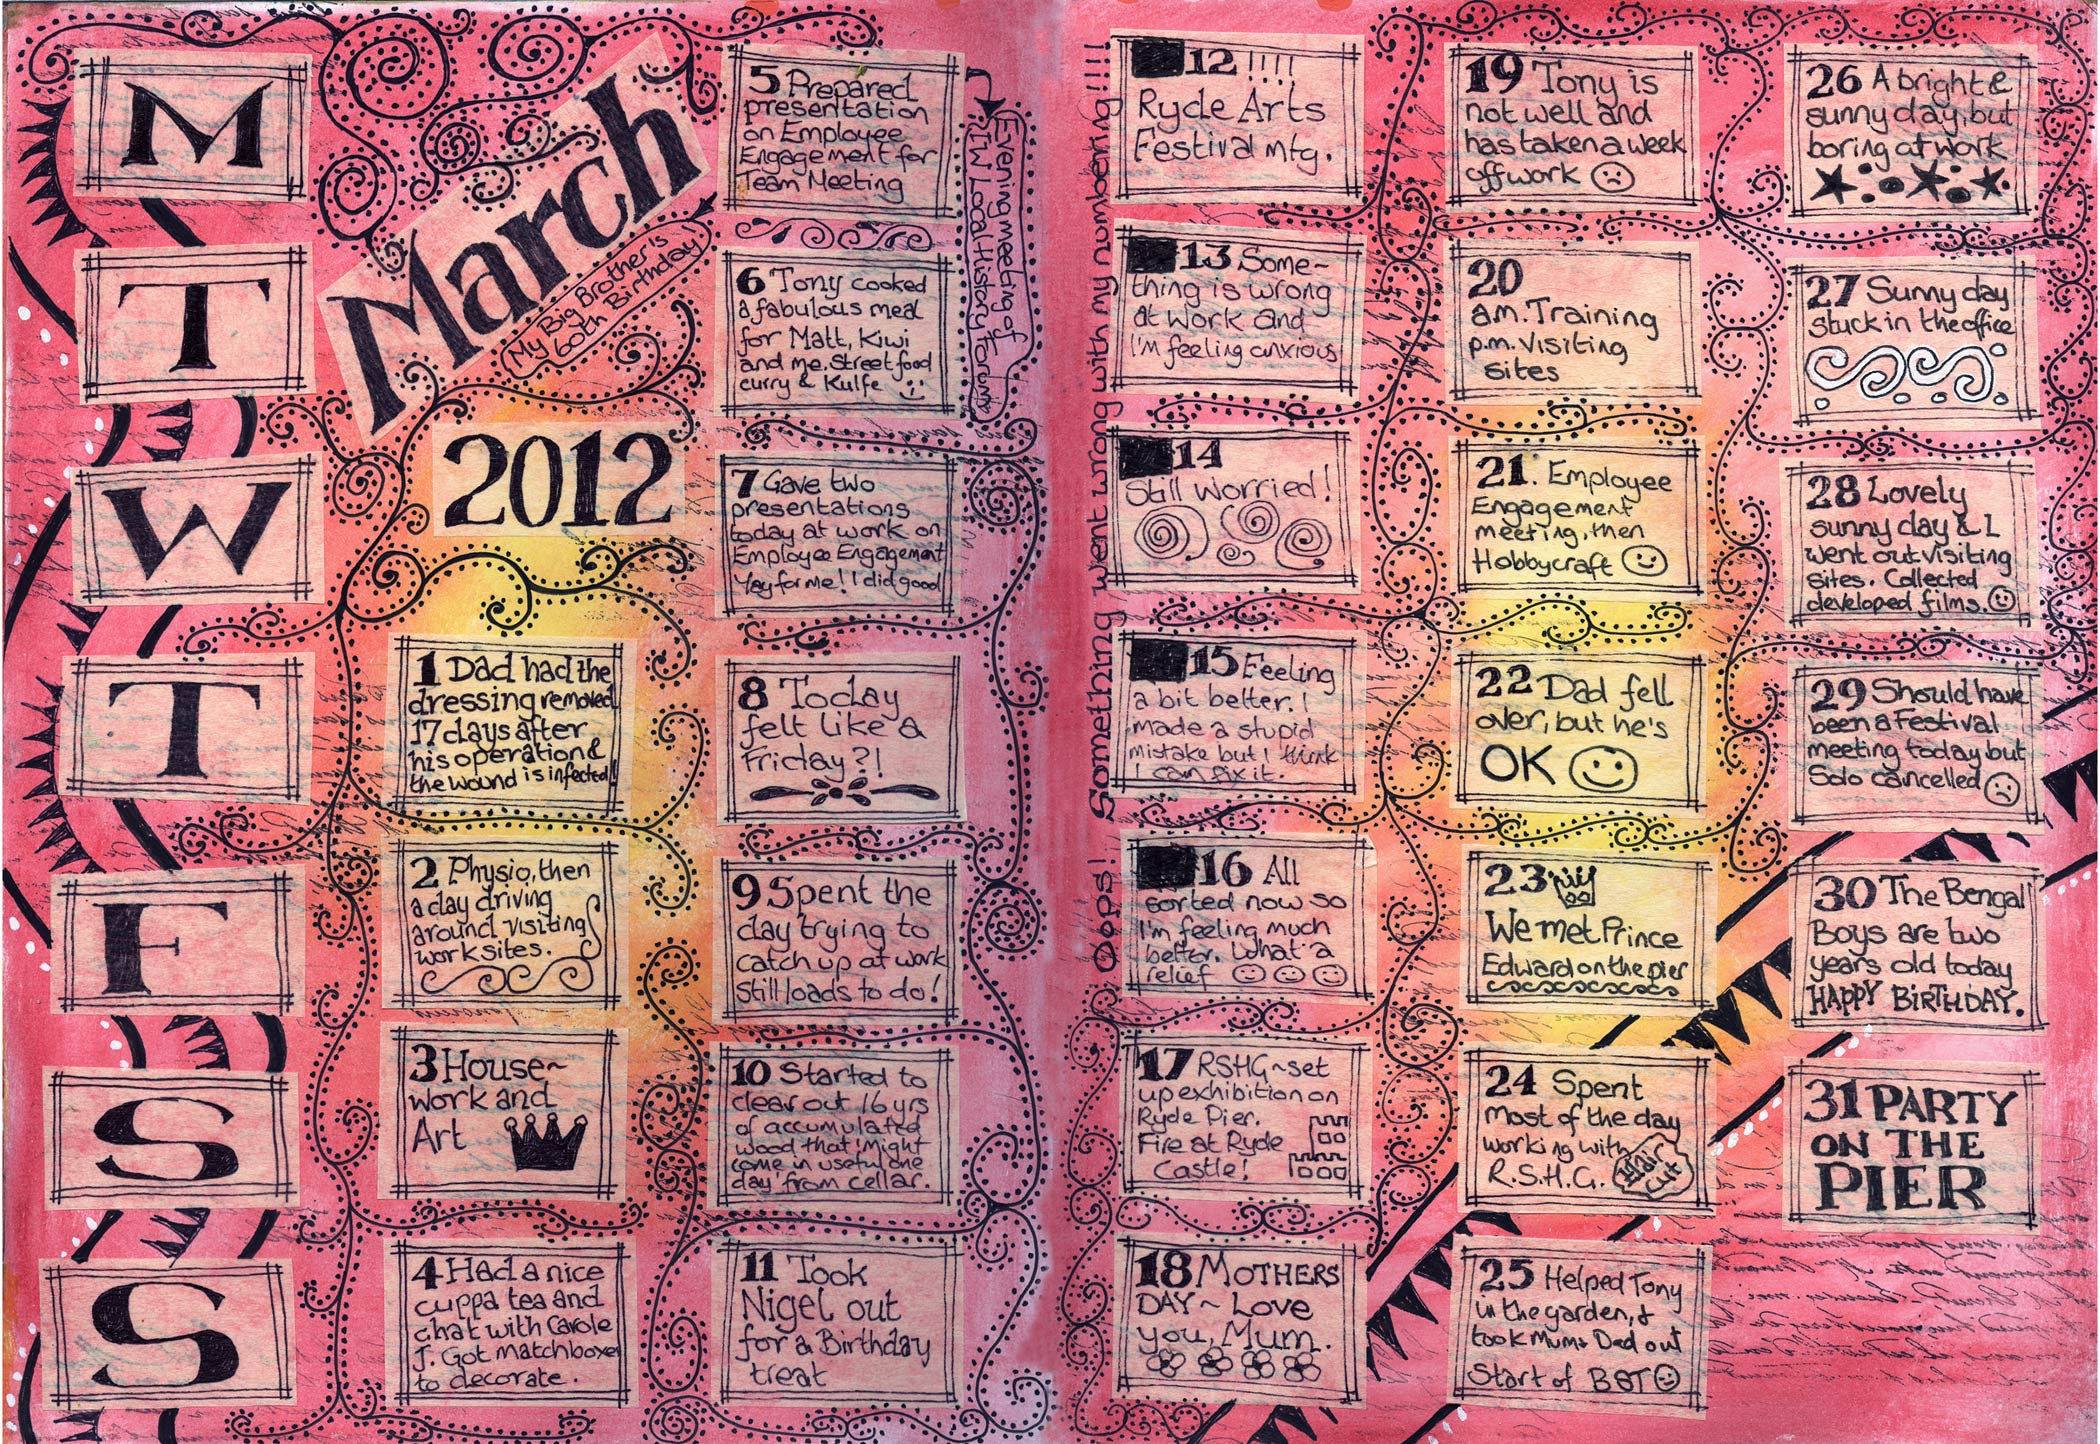 M
T
W
T
F
S
S
March
My Big Brother's
60th Birthday!
2012
1 Dad had the
dressing removed
17 days after
his operation &
the wound is infected!
2 Physio, then
a day driving
around visiting
work sites.
3 House~
work and
Art
4 Had a nice
cuppa tea and
chat with Carole
J. Got matchboxes
to decorate.
5 Prepared
presentation
on Employee
Engagement for
Team Meeting
Evening meeting of
IW Local History Forum
6 Tony cooked
a fabulous meal
for Matt, Kiwi
and me. Street food
curry & Kulfe
7 Gave two
presentations
today at work on
Employee Engagement
Yay for me! I did good
8 Today
felt like a
Friday?!
9 Spent the
day trying to
catch up at work
still loads to do!
10 Started to
clear out 16 yrs
of accumulated
wood that 'might
come in useful one
day' from cellar.
11 Took
Nigel out
for a Birthday
treat
Oops! Something went wrong with my numbering!!!!
12 !!!!
Ryde Arts
Festival mtg.
13 Some~
thing is wrong
at work and
I'm feeling anxious
14
Still worried!
15 Feeling
a bit better. I
made a stupid
mistake but I think
I can fix it.
16 All
sorted now so
I'm feeling much
better. What a
relief
17 RSHG~set
up exhibition on
Ryde Pier.
Fire at Ryde
Castle!
18 MOTHERS
DAY~ Love
you, Mum.
19 Tony is
not well and
has taken a week
off work
20
a.m. Training
p.m. visiting
sites
21. Employee
Engagement
meeting, then
Hobbycraft
22 Dad fell
over, but he's
OK
23
We met Prince
Edward on the pier
24 Spent
most of the day
working with
R.S.H.G.
Hair
cut
25 Helped Tony
in the garden, &
took Mum & Dad out
Start of BST
26 A bright &
sunny day, but
boring at work
27 Sunny day
stuck in the office
28 Lovely
sunny day & I
went out visiting
sites. Collected
developed films.
29 Should have
been a Festival
meeting today but
Solo cancelled
30 The Bengal
Boys are two
years old today
HAPPY BIRTHDAY.
31 PARTY
ON THE
PIER